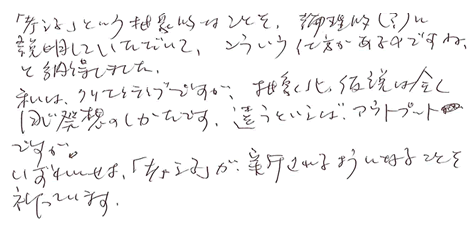 「考える」という抽象的なことを、論理的(?)に
説明していただいて、こういう仕方があるのですね、
と納得しました。
私は、クリエイティブですが、抽象化、仮説は全く
同じ発想のしかたです。違うといえば、アウトプット
ですが。
いずれにせよ、「考える」が、実行されるようになることを
祈っています。